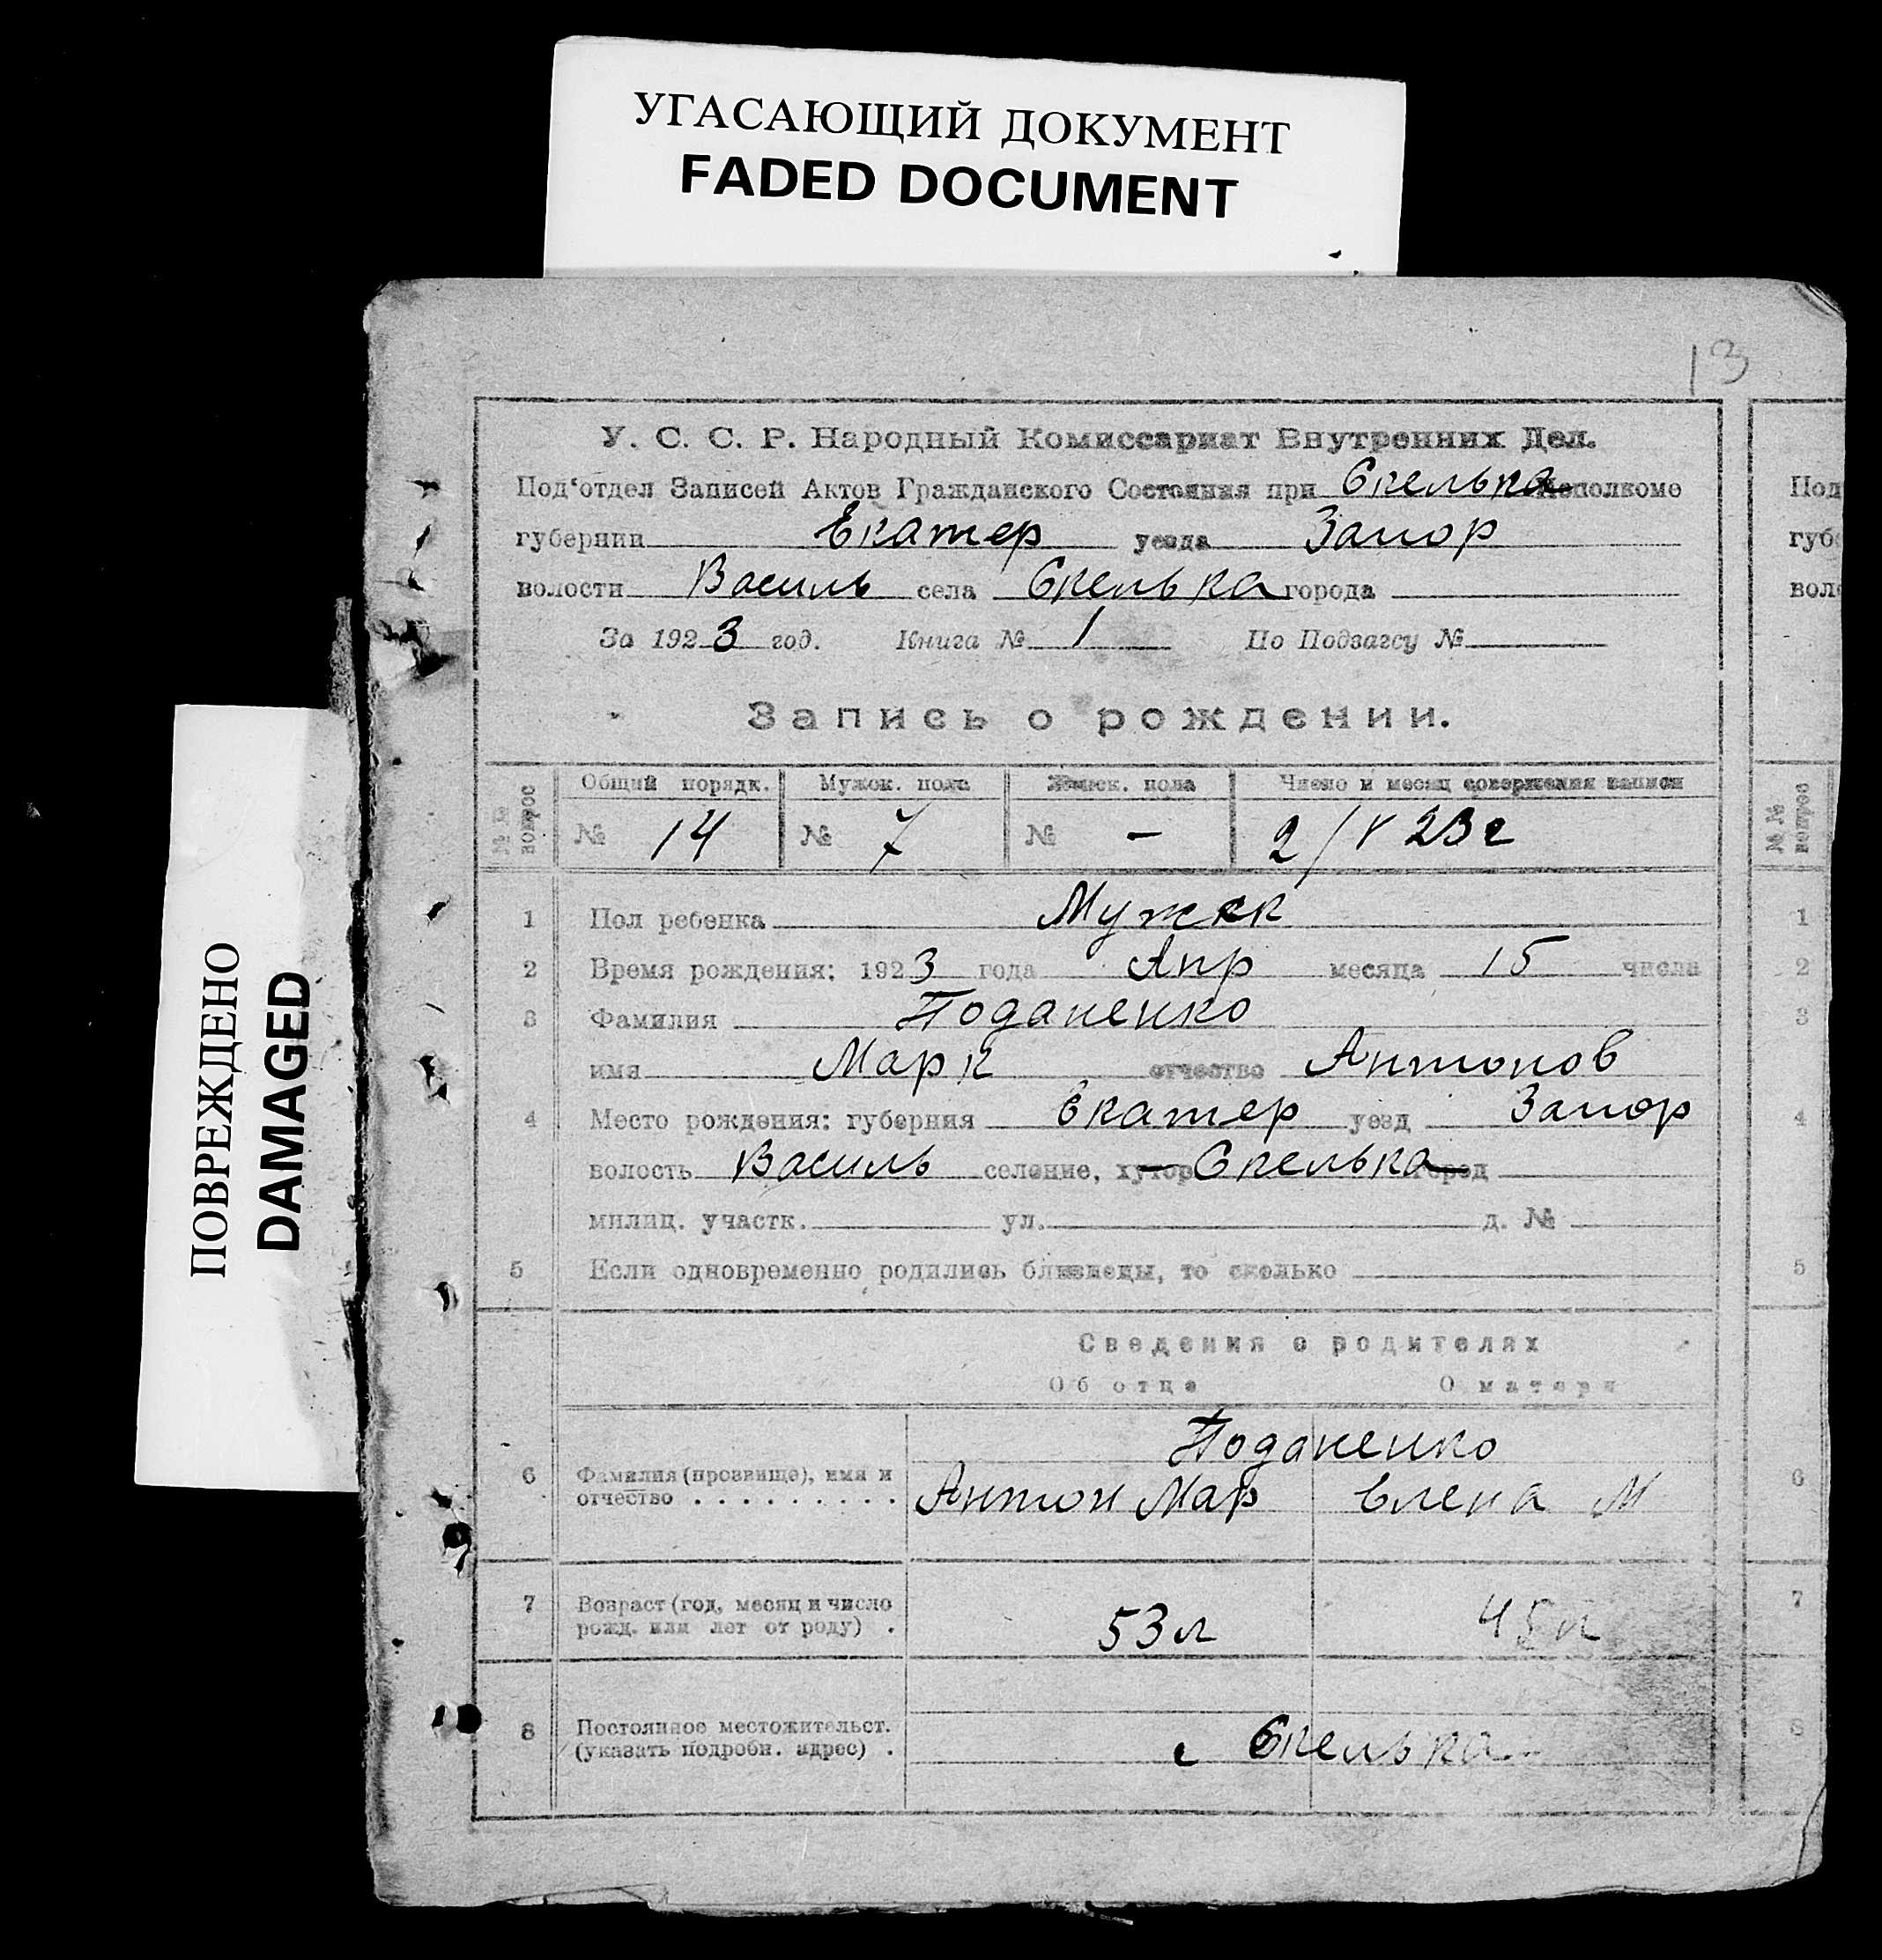 УГАСАЮЩИЙ ДОКУМЕНТ
FADED DOCUMENT
ПОВРЕЖДЕНО
DAMAGED
13
У. С. С. Р. Народный Комиссариат Внутренних Дел.
Под'отдел Записей Актов Гражданского Состояния при Скелька Исполкоме
губернии Екатер уезда Запор
волости Василь села Скелька города
За 1923 год. Книга № 1 По Подзагсу №
Запись о рождении.
№№ вопрос
Общий порядк. Мужск. пола Женск. пола Число и месяц совершения записи
№ 14 № 7 № - 2/V 23 г
1 Пол ребенка Мужск
2 Время рождения: 1923 года Апр месяца 15 числа
3 Фамилия Поданенко
имя Марк отчество Антонов
4 Место рождения: губерния Екатер уезд Запор
волость Василь селение, хутор Скелька город
милиц. участк. ул. д. №
5 Если одновременно родились близнецы, то сколько
Сведения о родителях
Об отце О матери
Поданенко
6 Фамилия (прозвище), имя и
отчество . . . . . . . . . Антон Мар Елена М
7 Возраст (год, месяц и число
рожд. или лет от роду) . 53 л 45 л
8 Постоянное местожительст.
(указать подробн. адрес) . с Скелька
Под
губ
вол
№№ вопрос
1
2
3
4
5
6
7
8